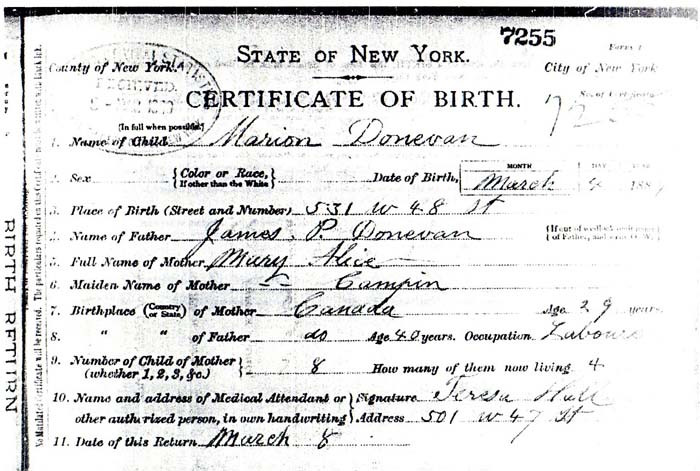 7255
STATE OF NEW YORK.
Form 1
County of New York.
City of New York
CERTIFICATE OF BIRTH.
(In full when possible.)
1. Name of Child Marion Donevan
2. Sex {Color or Race, If other than the White} Date of Birth, MONTH March DAY 4
3. Place of Birth (Street and Number) 531 W 48 St
4. Name of Father James P. Donevan
5. Full Name of Mother Mary Alice
6. Maiden Name of Mother " Campin
7. Birthplace (Country or State) of Mother Canada Age 29 years
8. " " of Father do Age 40 years. Occupation Labourer
9. Number of Child of Mother (whether 1, 2, 3, &c.) 8 How many of them now living 4
10. Name and address of Medical Attendant or other authorized person, in own handwriting Signature Teresa Hull
Address 501 W 47 St
11. Date of this Return March 8
BIRTH RETURN